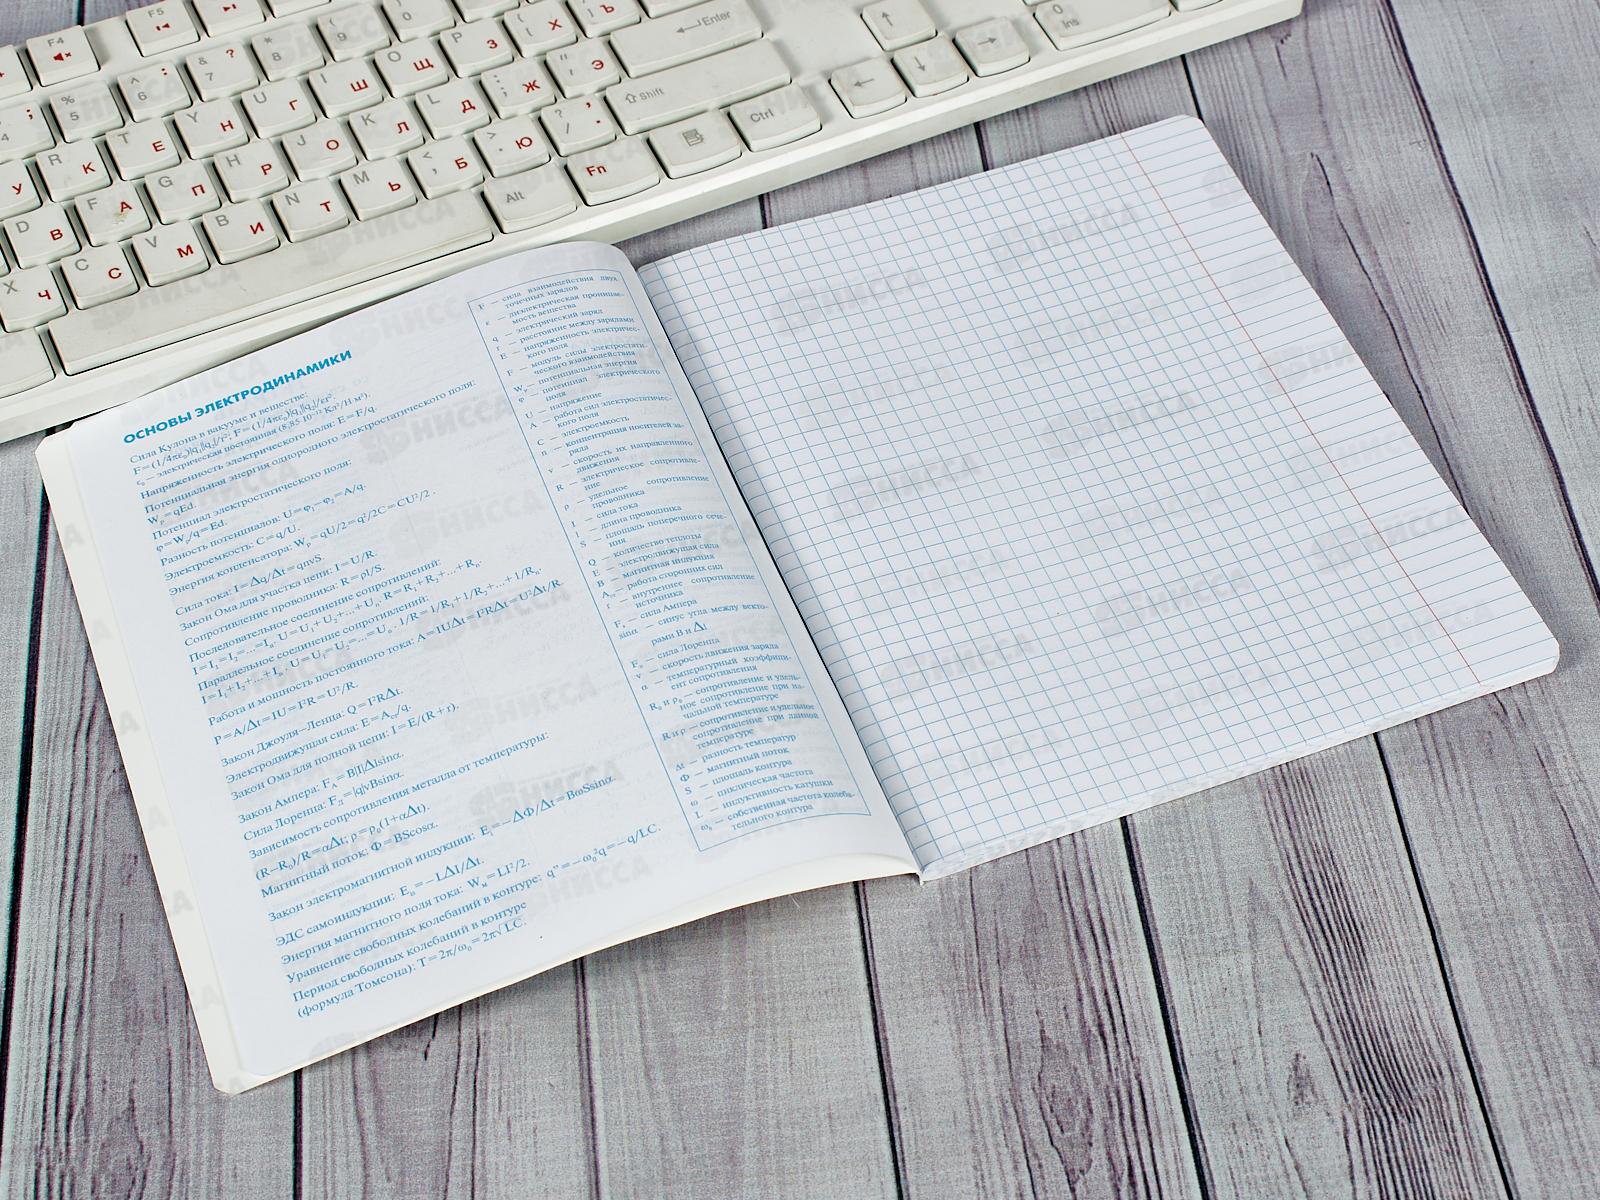 ОСНОВЫ ЭЛЕКТРОДИНАМИКИ
Сила Кулона в вакууме и веществе:
F=(1/4πε₀)|q₁||q₂|/r²; F=(1/4πε₀)|q₁||q₂|/εr².
ε₀ – электрическая постоянная (8,85·10⁻¹² Кл²/Н·м²).
Напряженность электрического поля: E=F/q.
Потенциальная энергия однородного электростатического поля:
Wₚ=qEd.
Потенциал электростатического поля:
φ=Wₚ/q=Ed.
Разность потенциалов: U=φ₁–φ₂=A/q.
Электроемкость: C=q/U.
Энергия конденсатора: Wₚ=qU/2=q²/2C=CU²/2.
Сила тока: I=Δq/Δt=qnvS.
Закон Ома для участка цепи: I=U/R.
Сопротивление проводника: R=ρl/S.
Последовательное соединение сопротивлений:
I=I₁=I₂=...=Iₙ. U=U₁+U₂+...+Uₙ. R=R₁+R₂+...+Rₙ.
Параллельное соединение сопротивлений:
I=I₁+I₂+...+Iₙ. U=U₁=U₂=...=Uₙ. 1/R=1/R₁+1/R₂+...+1/Rₙ.
Работа и мощность постоянного тока: A=IUΔt=I²RΔt=U²Δt/R
P=A/Δt=IU=I²R=U²/R.
Закон Джоуля–Ленца: Q=I²RΔt.
Электродвижущая сила: E=Aст/q.
Закон Ома для полной цепи: I=E/(R+r).
Закон Ампера: Fₐ=B|I|Δlsinα.
Сила Лоренца: Fл=|q|vBsinα.
Зависимость сопротивления металла от температуры:
(R–R₀)/R=αΔt; ρ=ρ₀(1+αΔt).
Магнитный поток: Φ=BScosα.
Закон электромагнитной индукции: Eᵢ=–ΔΦ/Δt=BωSsinα
ЭДС самоиндукции: Eᵢₛ=–LΔI/Δt.
Энергия магнитного поля тока: Wₘ=LI²/2.
Уравнение свободных колебаний в контуре: q"=–ω₀²q=–q/LC.
Период свободных колебаний в контуре
(формула Томсона): T=2π/ω₀=2π√LC.
F – сила взаимодействия двух
точечных зарядов
ε – диэлектрическая проницае-
мость вещества
q – электрический заряд
r – расстояние между зарядами
E – напряженность электричес-
кого поля
F – модуль силы электростати-
ческого взаимодействия
Wₚ – потенциальная энергия
φ – потенциал электрического
поля
U – напряжение
A – работа сил электростатичес-
кого поля
C – электроемкость
n – концентрация носителей за-
ряда
v – скорость их направленного
движения
R – электрическое сопротивле-
ние
ρ – удельное сопротивление
проводника
I – сила тока
l – длина проводника
S – площадь поперечного сече-
ния
Q – количество теплоты
E – электродвижущая сила
B – магнитная индукция
Aст – работа сторонних сил
r – внутреннее сопротивление
источника
Fₐ – сила Ампера
sinα – синус угла между векто-
рами B и Δl
Fл – сила Лоренца
v – скорость движения заряда
α – температурный коэффици-
ент сопротивления
R₀ и ρ₀ – сопротивление и удель-
ное сопротивление при на-
чальной температуре
R и ρ – сопротивление и удельное
сопротивление при данной
температуре
Δt – разность температур
Φ – магнитный поток
S – площадь контура
ω – циклическая частота
L – индуктивность катушки
ω₀ – собственная частота колеба-
тельного контура
F4
F5
Enter
Shift
Ctrl
Alt
Fn
Ins
НИССА